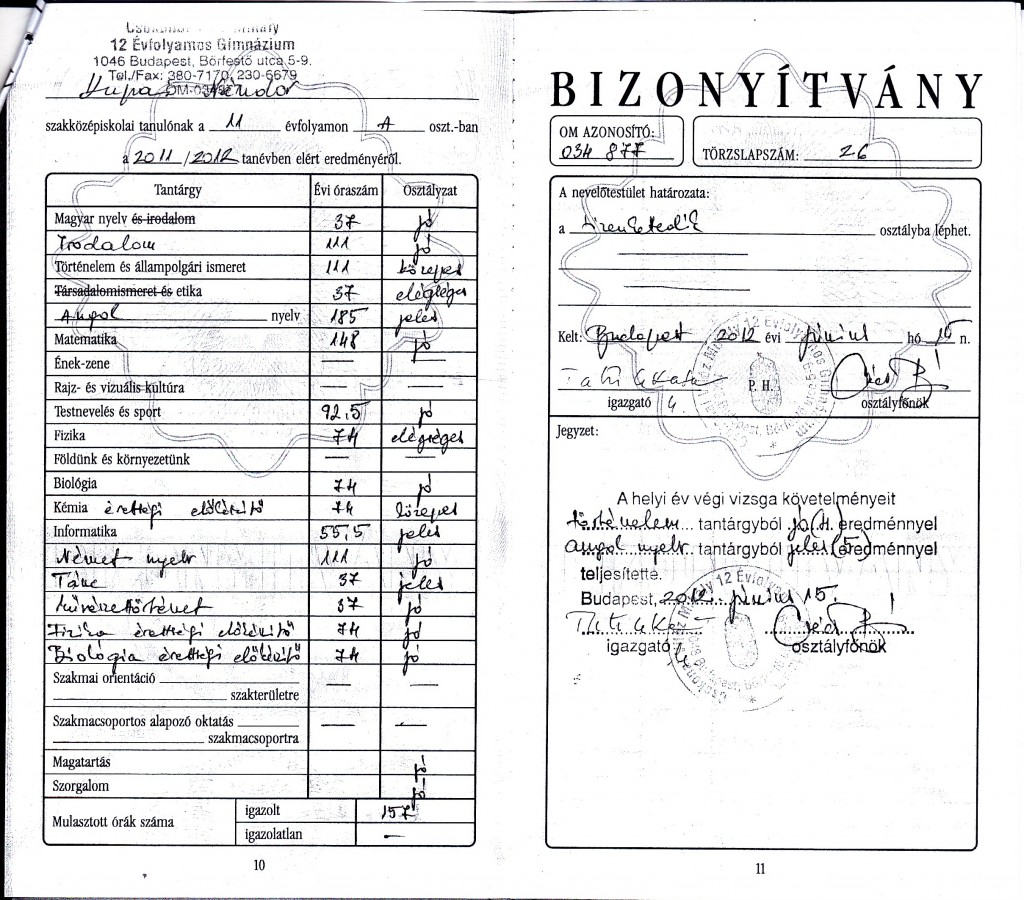 12 Évfolyamos Gimnázium
1046 Budapest, Bőrfestő utca 5-9.
Tel./Fax: 380-7170, 230-6679
szakközépiskolai tanulónak a 11 évfolyamon A oszt.-ban
a 2011/2012 tanévben elért eredményéről.
Tantárgy Évi óraszám Osztályzat
Magyar nyelv és irodalom 37 jó
Irodalom 111 jó
Történelem és állampolgári ismeret 111 közepes
Társadalomismeret és etika 37 elégséges
Angol nyelv 185 jeles
Matematika 148 jó
Ének-zene — —
Rajz- és vizuális kultúra — —
Testnevelés és sport 92,5 jó
Fizika 74 elégséges
Földünk és környezetünk — —
Biológia 74 jó
Kémia érettségi előkészítő 74 közepes
Informatika 55,5 jeles
Német nyelv 111 jó
Tánc 37 jeles
Művészettörténet 37 jó
Fizika érettségi előkészítő 74 jó
Biológia érettségi előkészítő 74 jó
Szakmai orientáció — —
szakterületre
Szakmacsoportos alapozó oktatás — —
szakmacsoportra
Magatartás jó
Szorgalom jó
Mulasztott órák száma
igazolt 157
igazolatlan —
10
BIZONYÍTVÁNY
OM AZONOSÍTÓ:
034 877
TÖRZSLAPSZÁM: 26
A nevelőtestület határozata:
a tizenkettedik osztályba léphet.
Kelt: Budapest 2012 évi június hó 15 n.
P. H.
igazgató osztályfőnök
Jegyzet:
A helyi év végi vizsga követelményeit
történelem tantárgyból jó (4) eredménnyel
angol nyelv tantárgyból jeles (5) eredménnyel
teljesítette.
Budapest, 2012. június 15.
igazgató osztályfőnök
11